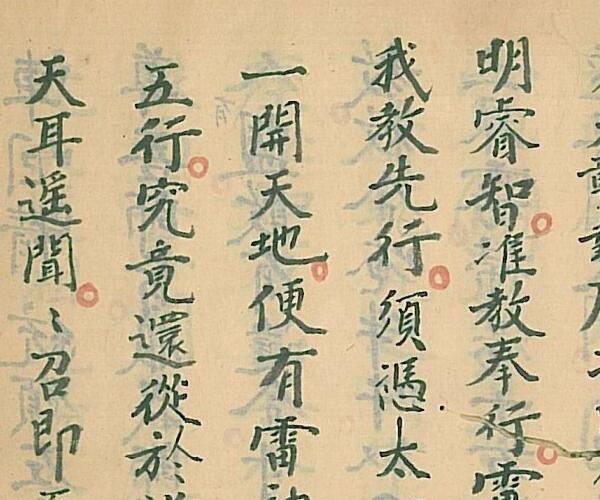 明睿智准教奉行
我教先行須憑太
一開天地便有雷
五行究竟還從於
天耳遥聞〻召即